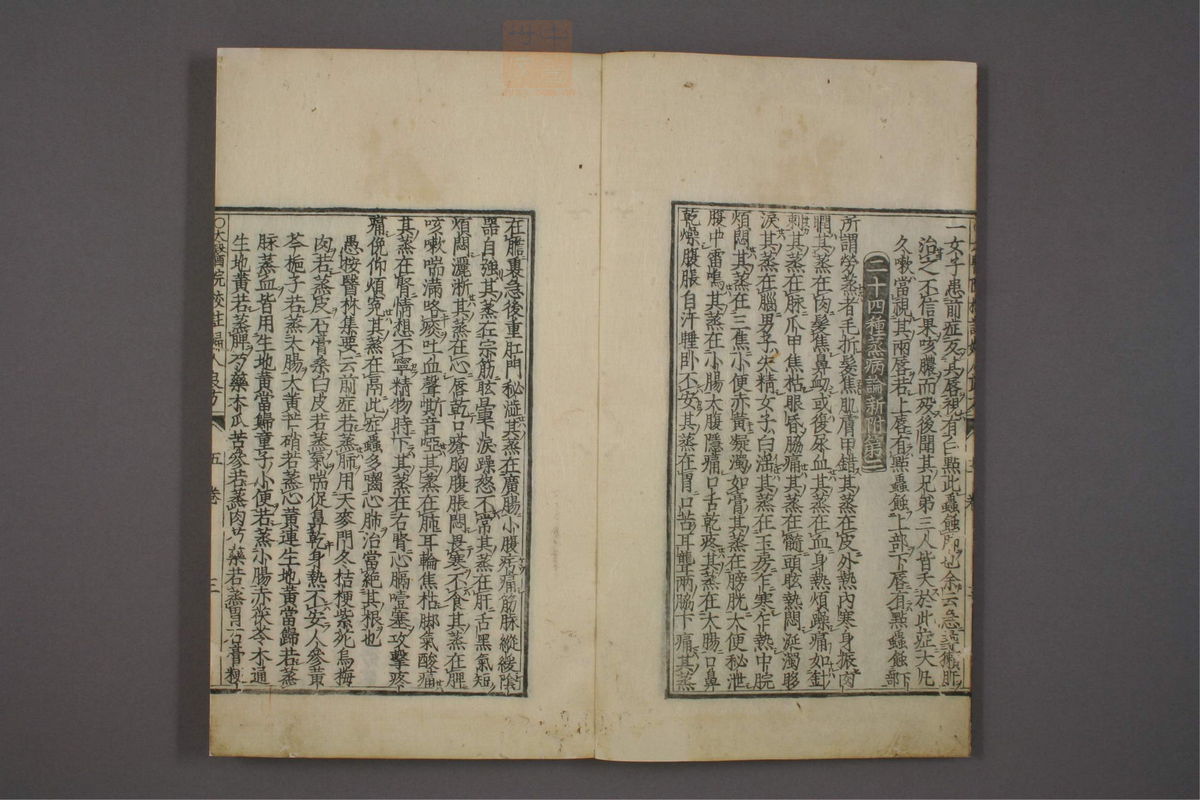 一女子患前症反其唇視有白點此蟲蝕肺也余云急請
治之不信果咳膿而歿後聞其兄弟三人皆夭於此症大凡
久嗽當視其兩唇若上唇有點蟲蝕上部下唇有點蟲蝕下部
二十四種蒸病論新附第二
所謂勞蒸者毛折髮焦肌膚甲錯其蒸在皮外熱內寒身振肉
瞤其蒸在肉髮焦鼻衂或復尿血其蒸在血身熱煩躁痛如針
刺其蒸在脉爪甲焦枯眼昏脇痛其蒸在髓頭眩熱悶涎濁眵
淚其蒸在腦男子失精女子白淫其蒸在玉房乍寒乍熱中脘
煩悶其蒸在三焦小便赤黃凝濁如膏其蒸在膀胱大便秘泄
腹中雷鳴其蒸在小腸大腹隱痛口舌乾疼其蒸在大腸口鼻
乾燥腹脹自汗睡卧不安其蒸在胃口苦耳聾兩脇下痛其蒸
在膽裏急後重肛門秘澁其蒸在廣腸小腹疞痛筋脉縱緩陰
器自強其蒸在宗筋眩暈下淚躁怒不常其蒸在肝舌黑氣短
煩悶灑淅其蒸在心唇乾口瘡胸腹脹悶畏寒不食其蒸在脾
咳嗽喘滿咯痰吐血聲嘶音啞其蒸在肺耳輪焦枯脚氣酸痛
其蒸在腎情想不寧精物時下其蒸在右腎心膈噎塞攻擊疼
痛俛仰煩寃其蒸在膈此症蟲多嚙心肺治當絕其根也
愚按醫林集要云前症若蒸肺用天麥門冬桔梗紫菀烏梅
肉若蒸皮石膏桑白皮若蒸氣喘促鼻乾身熱不安人參黃
芩梔子若蒸大腸大黃芒硝若蒸心黃連生地黃當歸若蒸
脉蒸血皆用生地黃當歸童子小便若蒸小腸赤茯苓木通
生地黃若蒸脾芍藥木瓜苦參若蒸肉芍藥若蒸胃石膏粳
〇太醫院校註婦人良方
五卷
三